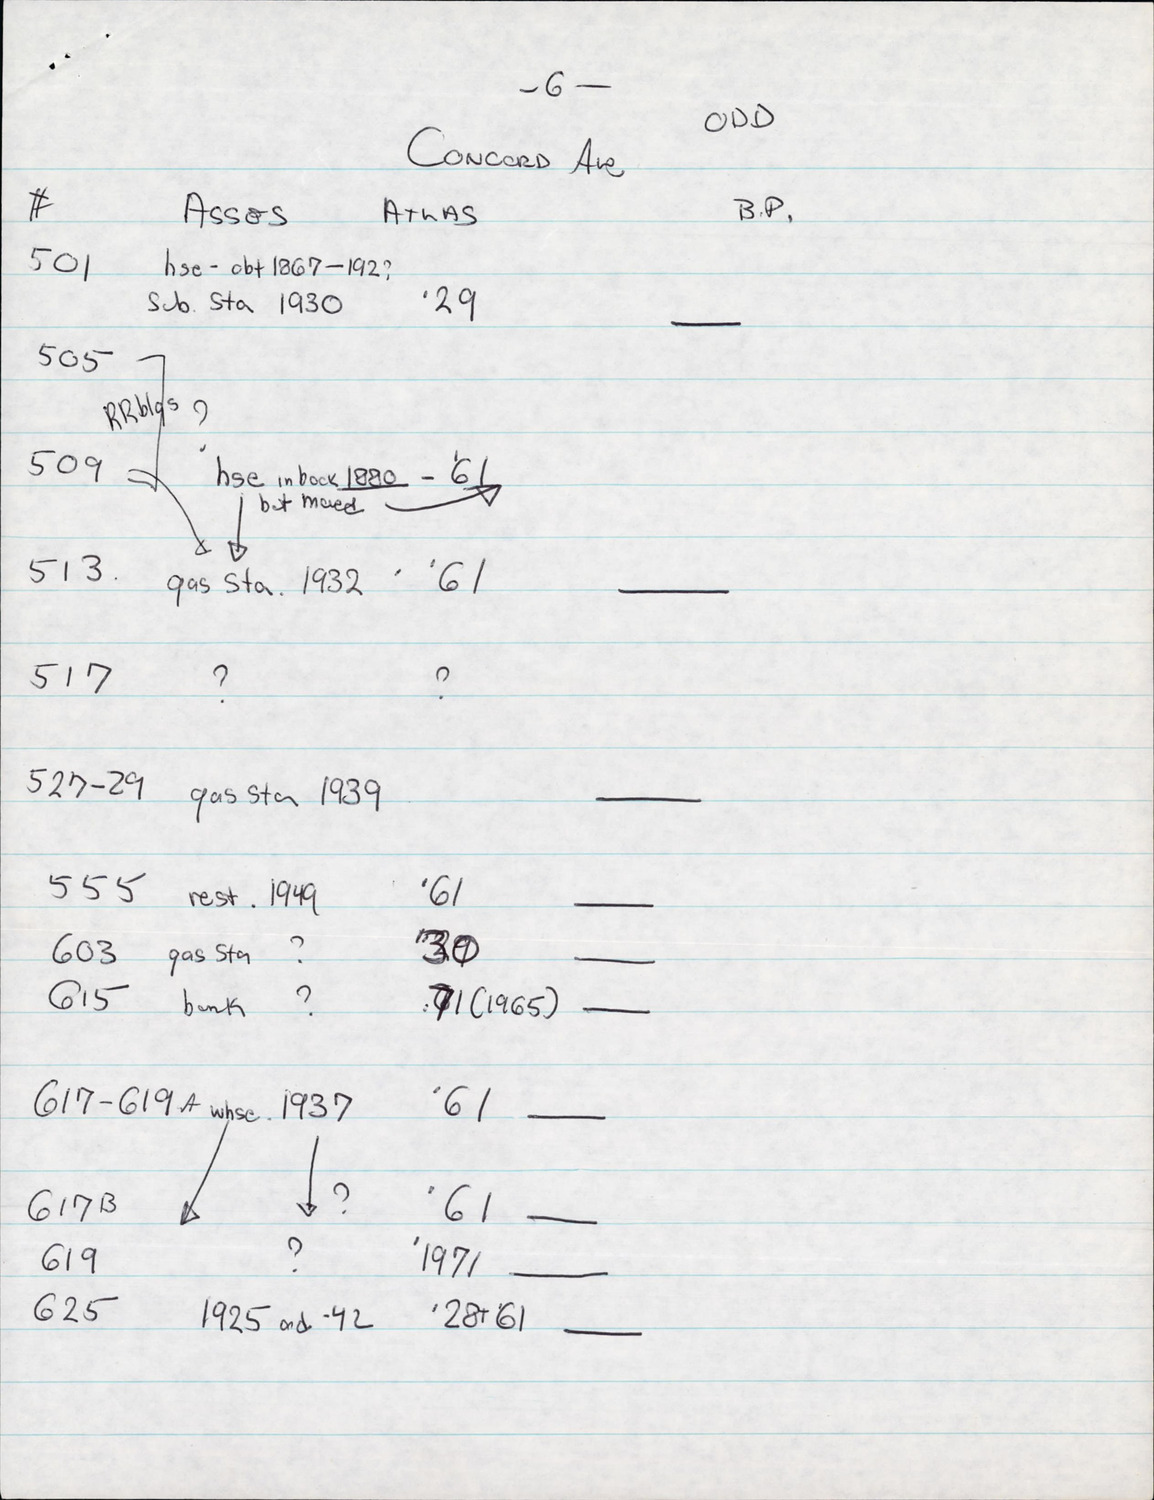 -6-
ODD
Concord Ave
# Asses Atlas B.P.
501 hse - abt 1867-192?
Sub. Sta 1930 '29
505
RR blgs ?
509 hse in back 1880 - '61
but moved
513. gas sta. 1932 '61
517 ? ?
527-29 gas sta 1939
555 rest. 1949 '61
603 gas sta ?
615 bank ? '71 (1965)
617-619A whse. 1937 '61
617B ? '61
619 ? '1971
625 1925 and -42 '28+'61